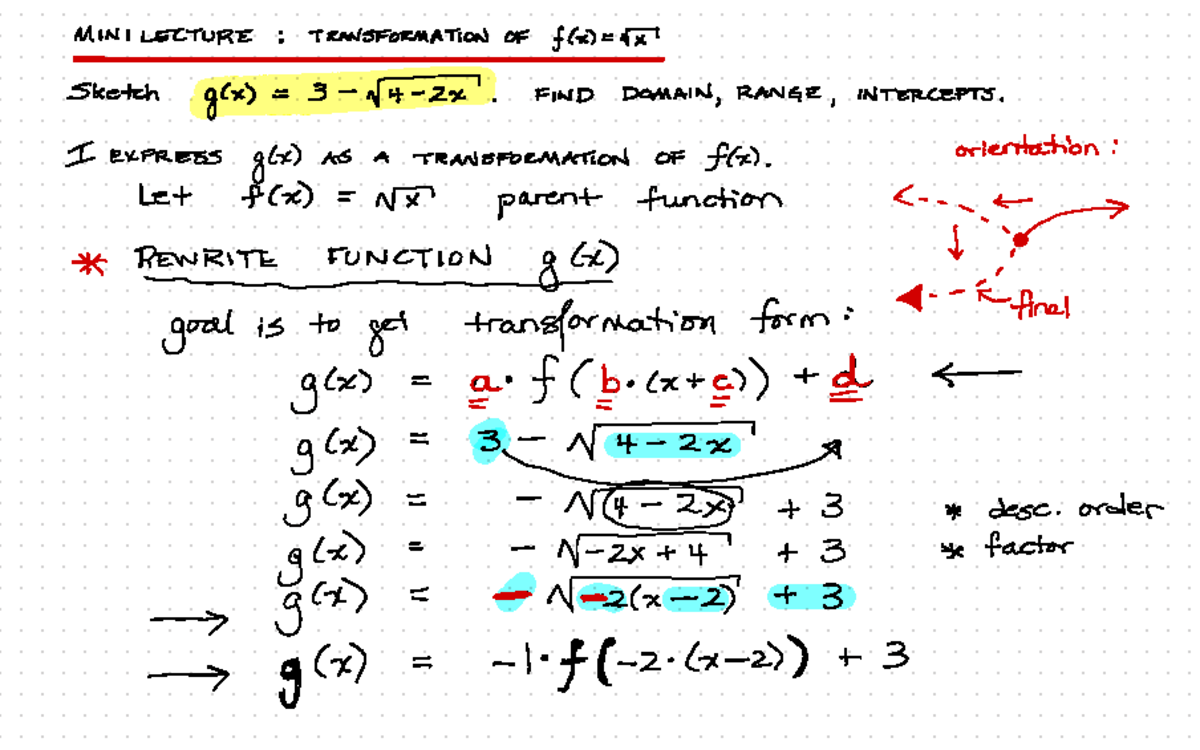 MINI LECTURE : TRANSFORMATION OF f(x)=√x
Sketch g(x) = 3 - √4-2x. FIND DOMAIN, RANGE, INTERCEPTS.
I EXPRESS g(x) AS A TRANSFORMATION OF f(x).
orientation :
Let f(x) = √x parent function
* REWRITE FUNCTION g(x)
final
goal is to get transformation form:
g(x) = a· f(b·(x+c)) + d ←
g(x) = 3 - √4-2x
g(x) = - √4-2x + 3
* desc. order
g(x) = - √-2x+4 + 3
* factor
→ g(x) = - √-2(x-2) + 3
→ g(x) = -1·f(-2·(x-2)) + 3